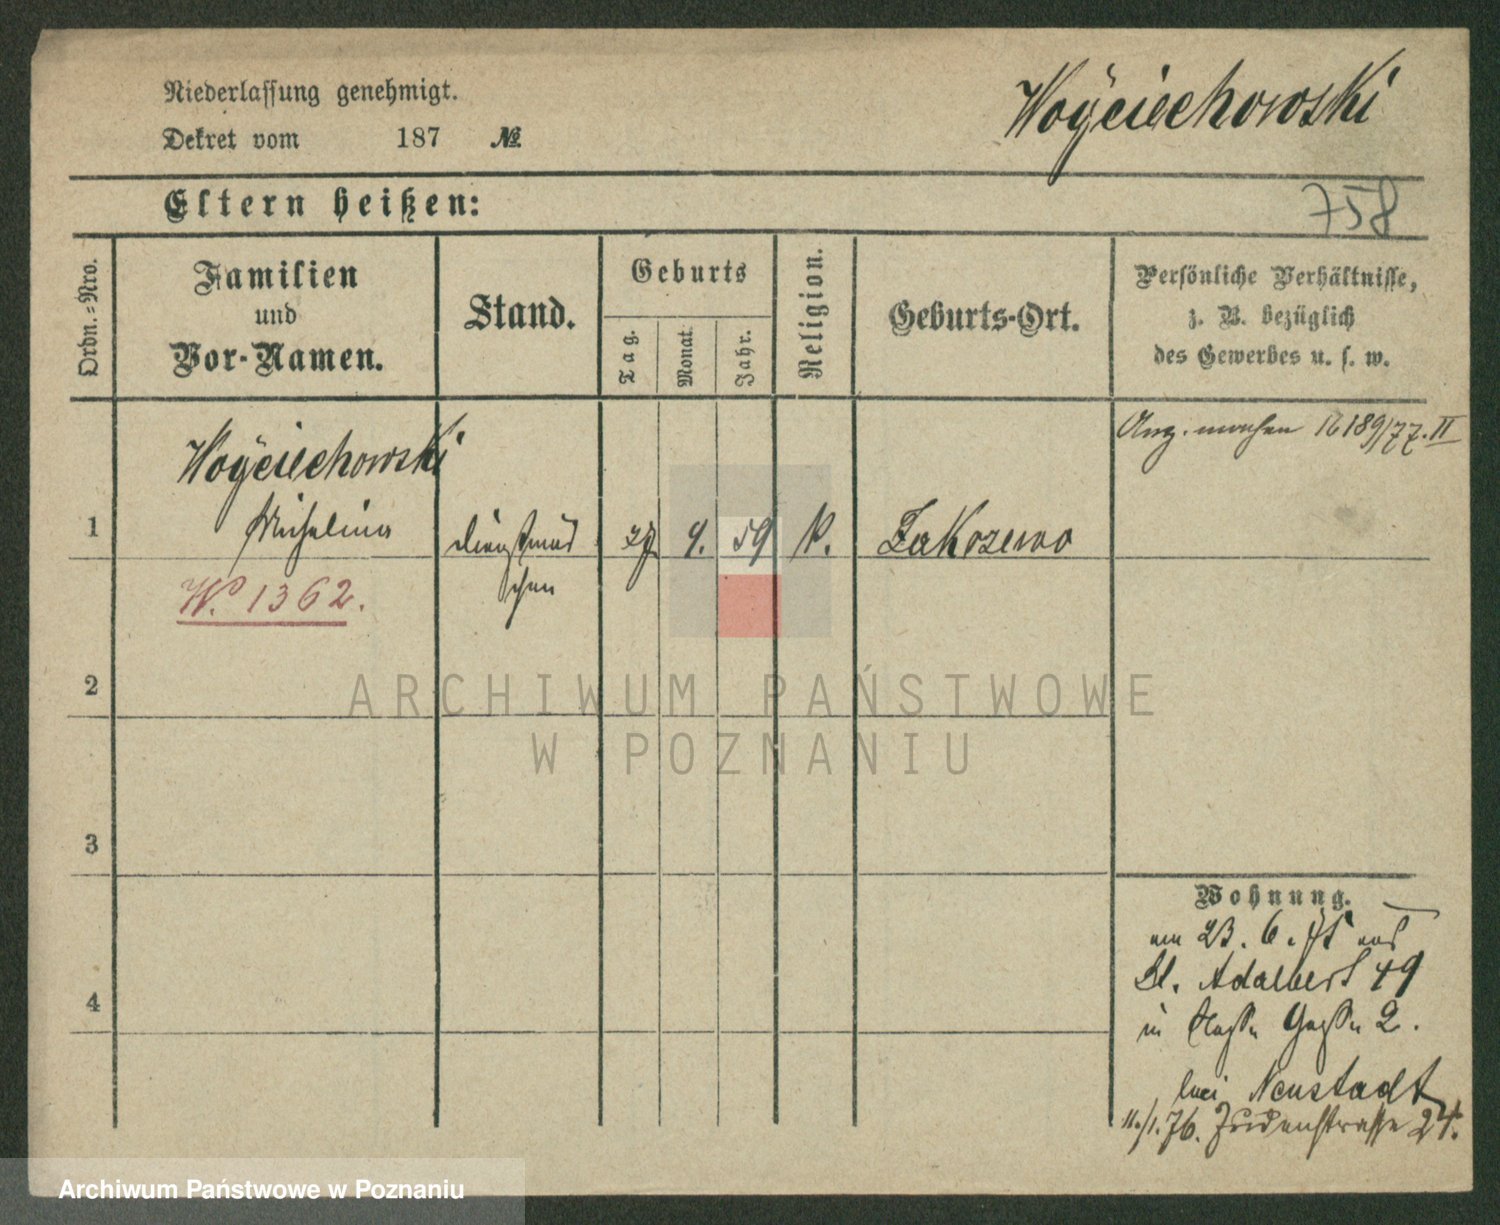 Niederlassung genehmigt.
Dekret vom 187 №
Woÿciechowski
Eltern heißen:
758
Ordn.-Nro.
Familien
und
Vor-Namen.
Stand.
Geburts
Tag.
Monat
Jahr.
Religion.
Geburts-Ort.
Persönliche Verhältnisse,
z. B. bezüglich
des Gewerbes u. s. w.
189/77.II
Woÿciechowski
1 Michalina Dienstmäd 9. 59 K. Zakrzewo
chen
W. 1362.
2
ARCHIWUM PAŃSTWOWE
W POZNANIU
3
4
Wohnung.
am 23. 6. 75 aus
St. Adalbert 49
in Gasse 2.
bei Neustadt
11./1. 76. Judenstrasse 24.
Archiwum Państwowe w Poznaniu